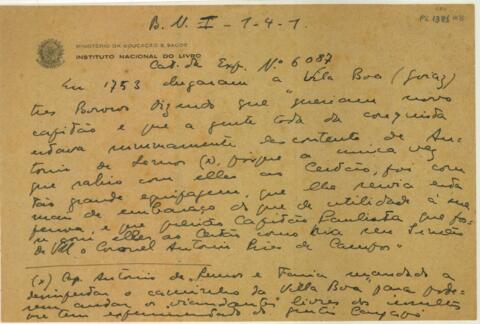 B. N. I - 1-4-1
MINISTÉRIO DA EDUCAÇÃO E SAÚDE
INSTITUTO NACIONAL DO LIVRO
Cat. da Exp. Nº 6087
Em 1753 chegaram a Vila Boa (Goiaz)
tres Bororos dizendo que "queriam novo
capitão e que a gente toda da conquista
andava summamente descontente de An-
tonio de Lemos (x), porque a unica vez
que sahio com elles ao Certão, foi com
tão grande equipagem, que lhe servia
mais de embaraço do que de utilidade á
e que Capitão Paulista que fos-
se com elles ao Certão como hia seu Irmão
de VM o Coronel Antonio Pires de Campos"
(x) Cap. Antonio de Lemos e Faria mandado a
desinfestar o caminho da Villa Boa "para pode-
rem andar os viandantes livres dos insultos
que tem experimentado do gentio Cayapó